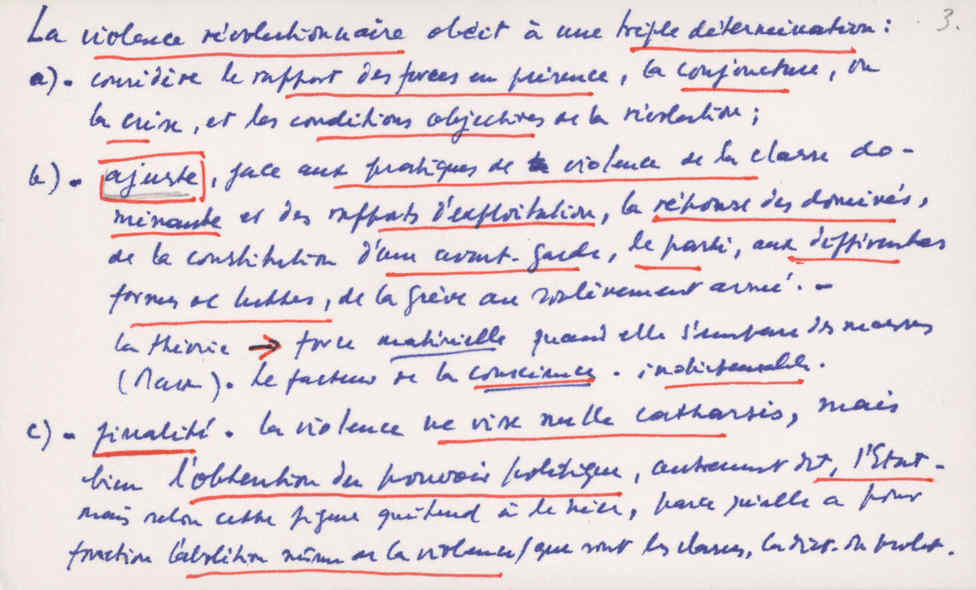 3.
La violence révolutionnaire obéit à une triple détermination :
a) - considère le rapport des forces en présence, la conjoncture, ou
la crise, et les conditions objectives de la révolution ;
b) - ajuste, face aux pratiques de violence de la classe do-
minante et des rapports d'exploitation, la réponse des dominés,
de la constitution d'une avant-garde, le parti, aux différentes
formes de luttes, de la grève au soulèvement armé. -
la théorie → force matérielle quand elle s'empare des masses
(Marx). Le facteur de la conscience - indispensable.
c) - finalité. la violence ne vise nulle catharsis, mais
bien l'obtention du pouvoir politique, autrement dit, l'Etat -
mais selon cette figure qui tend à le nier, parce qu'elle a pour
fonction l'abolition même de la violence / que sont les classes, la dict. du prolét.